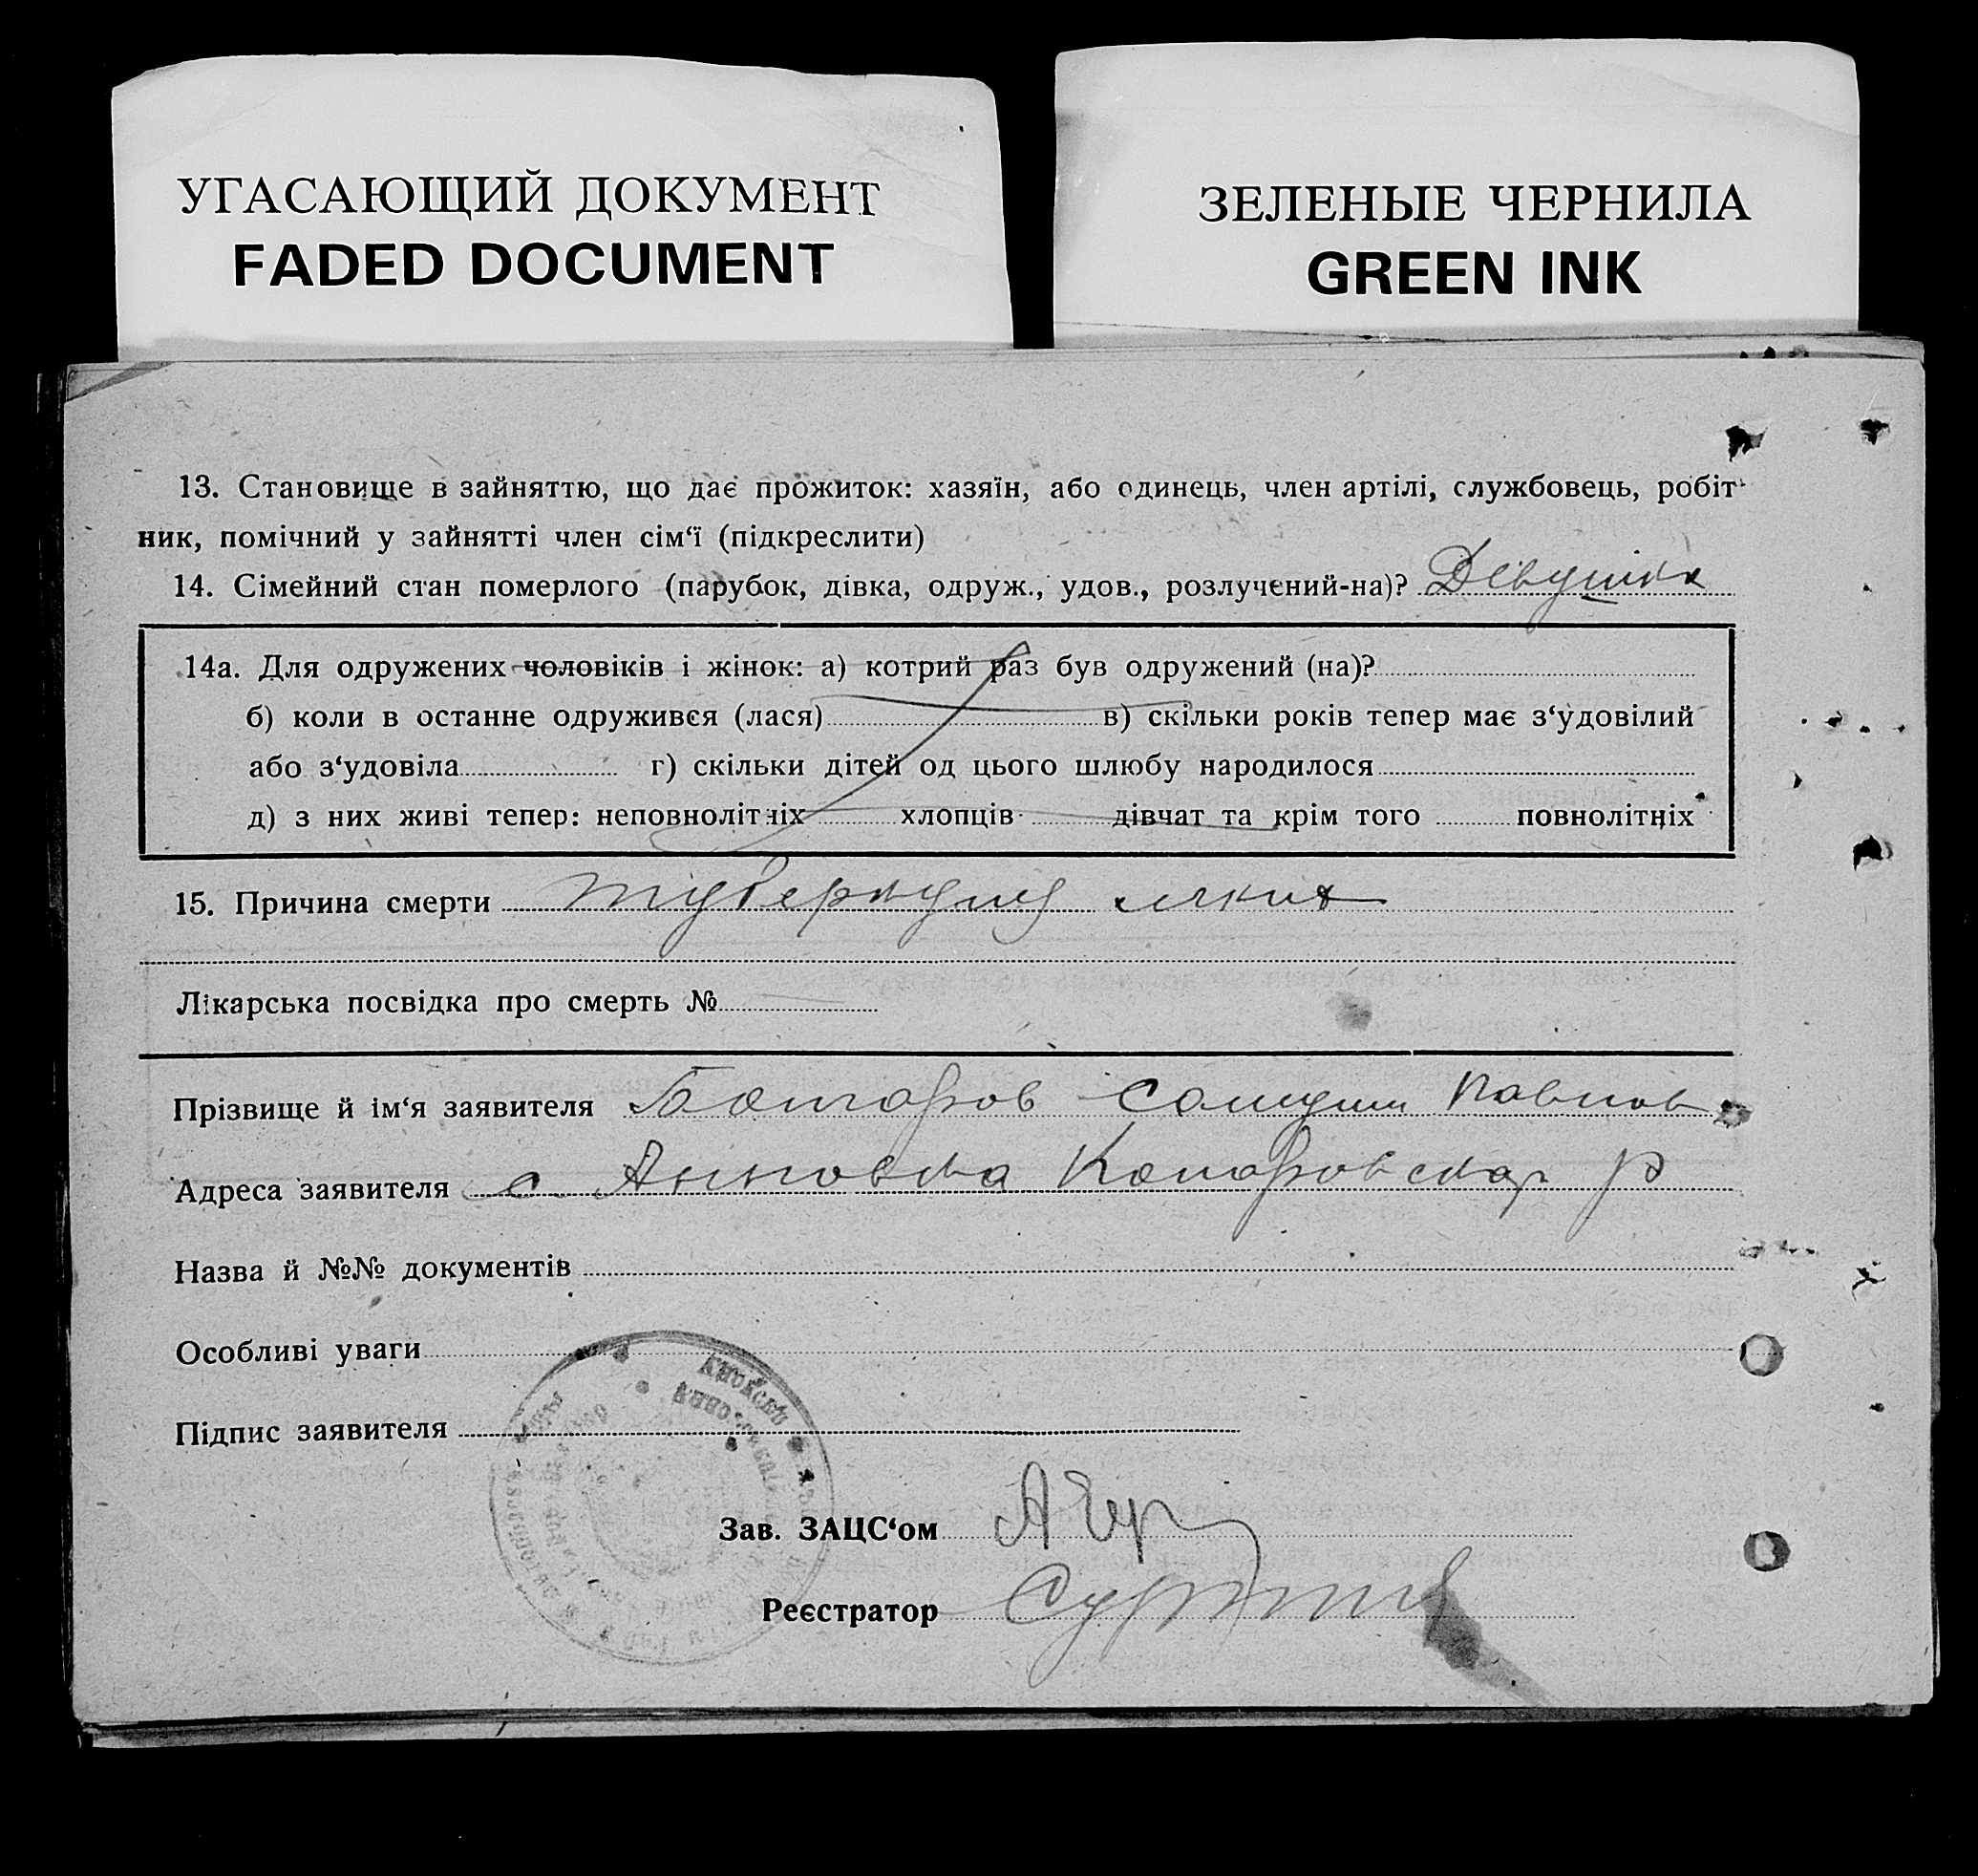 УГАСАЮЩИЙ ДОКУМЕНТ
FADED DOCUMENT
ЗЕЛЕНЫЕ ЧЕРНИЛА
GREEN INK
13. Становище в зайняттю, що дає прожиток: хазяїн, або одинець, член артілі, службовець, робіт-
ник, помічний у зайнятті член сім‘ї (підкреслити)
14. Сімейний стан померлого (парубок, дівка, одруж., удов., розлучений-на)? Девушка
14а. Для одружених чоловіків і жінок: а) котрий раз був одружений (на)?
б) коли в останне одружився (лася) в) скільки років тепер має з‘удовілий
або з‘удовіла г) скільки дітей од цього шлюбу народилося
д) з них живі тепер: неповнолітніх хлопців дівчат та крім того повнолітніх
15. Причина смерти туберкулез
Лікарська посвідка про смерть №
Прізвище й ім‘я заявителя Павлов
Адреса заявителя с. Анновка р
Назва й №№ документів
Особливі уваги
Підпис заявителя
Зав. ЗАЦС‘ом
Реєстратор